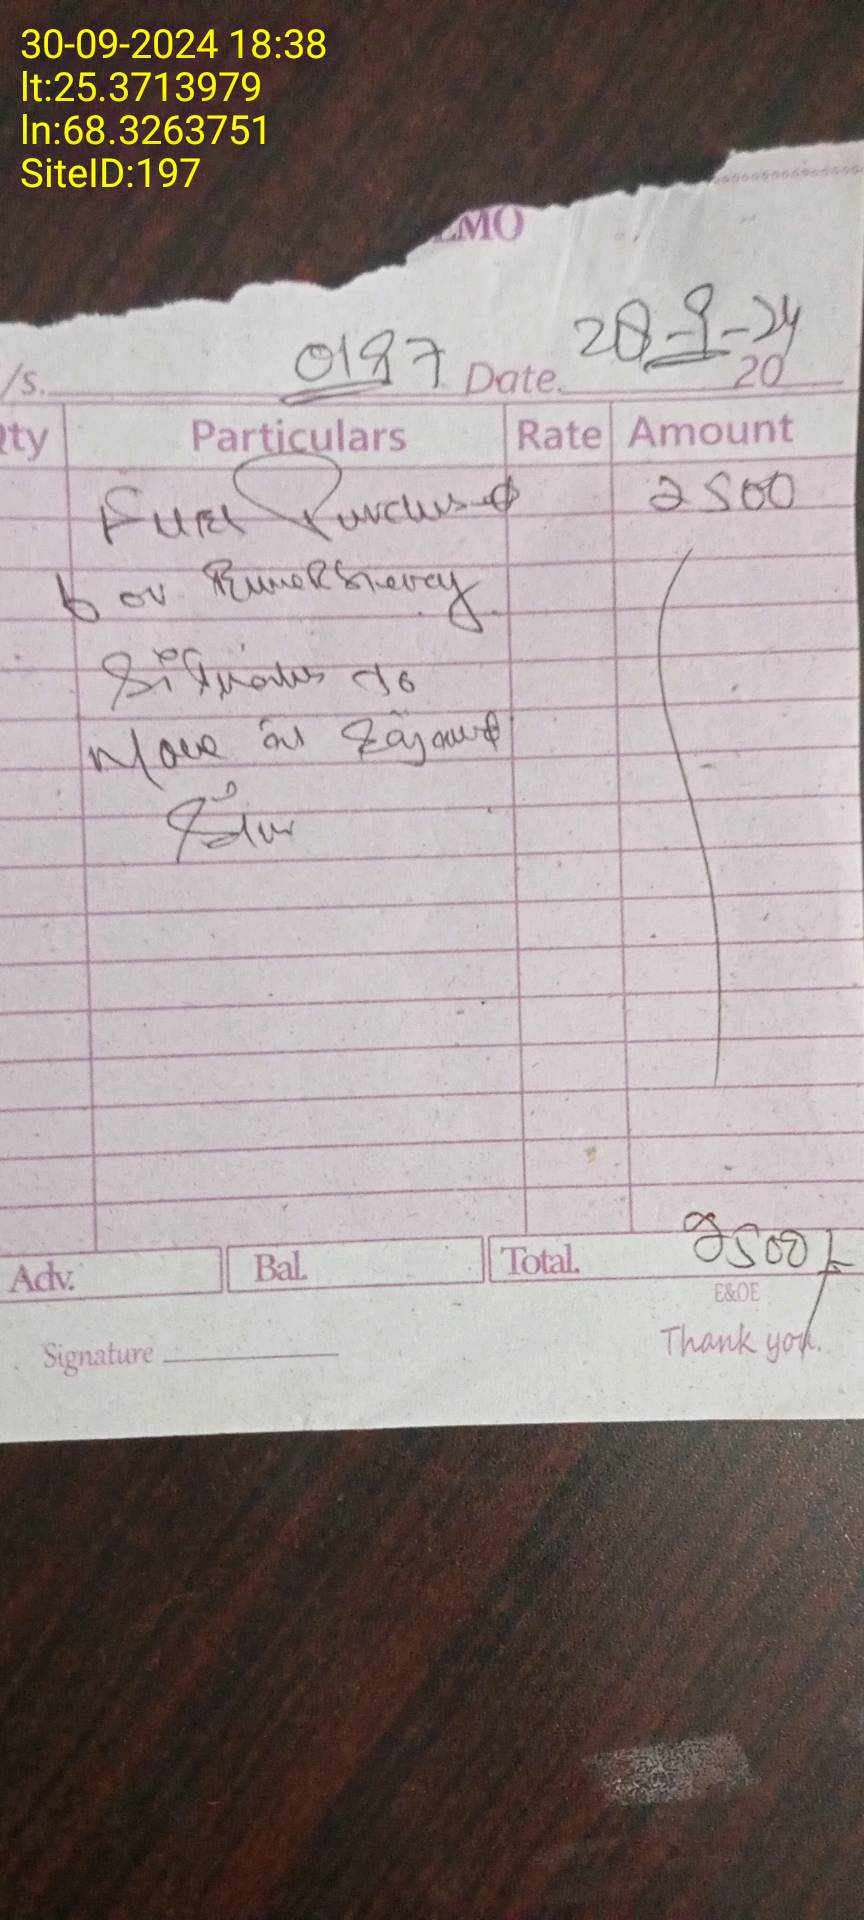 30-09-2024 18:38
lt:25.3713979
ln:68.3263751
SiteID:197
EMO
/s. 0197 Date. 28-9-24 20
Qty Particulars Rate Amount
Fuel Purchased 2500
for
to
Move in
Adv. Bal. Total. 2500/-
E&OE
Signature Thank you.